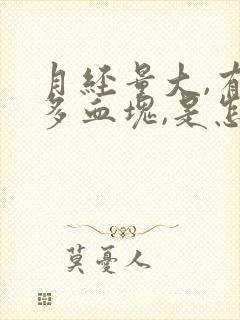 月经量大,有
多血块,是怎
莫憂人